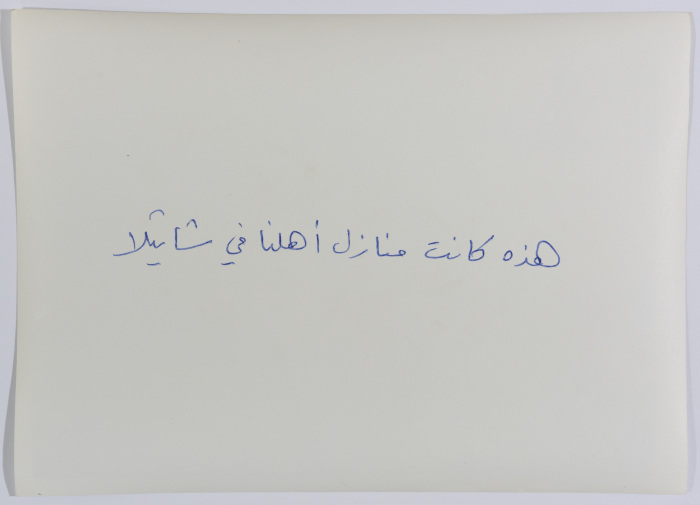 هذه كانت منازل أهلنا في شاتيلا